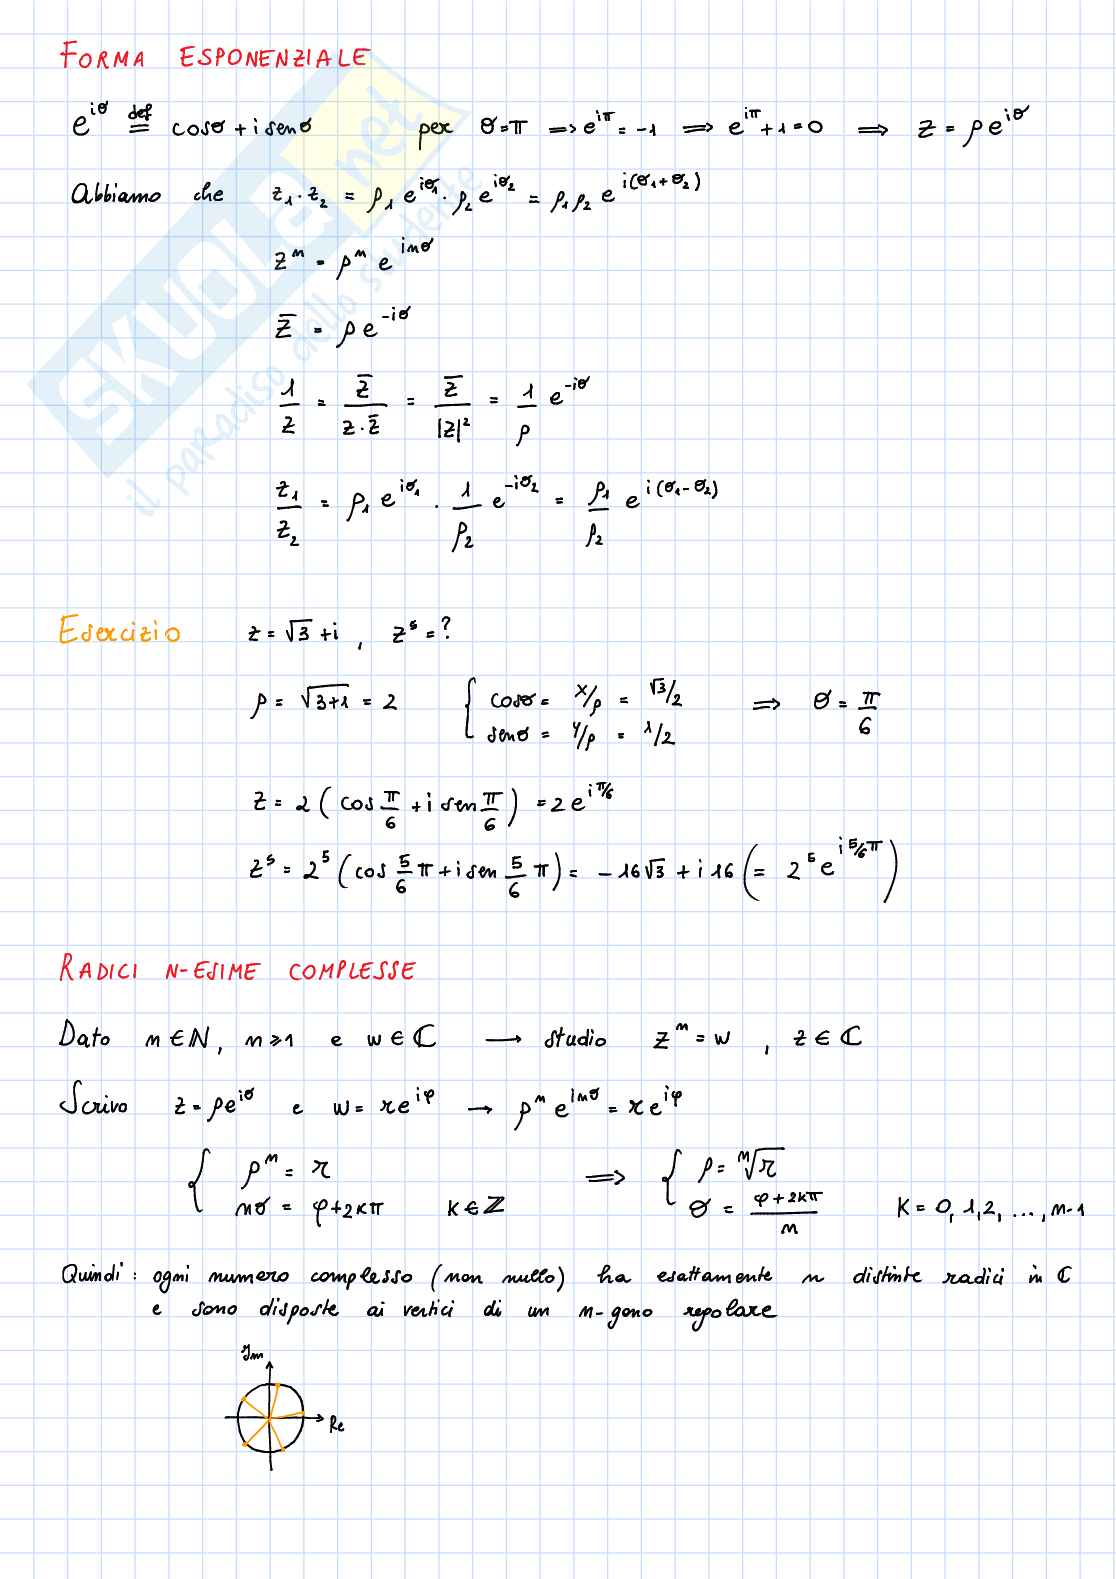 FORMA ESPONENZIALE
e^{iθ} \overset{def}{=} cosθ + i senθ per θ=π ⟹ e^{iπ} = -1 ⟹ e^{iπ}+1=0 ⟹ z = ρe^{iθ}
Abbiamo che z₁·z₂ = ρ₁e^{iθ₁}·ρ₂e^{iθ₂} = ρ₁ρ₂e^{i(θ₁+θ₂)}
z^n = ρ^n e^{inθ}
\overline{z} = ρe^{-iθ}
\frac{1}{z} = \frac{\overline{z}}{z·\overline{z}} = \frac{\overline{z}}{|z|²} = \frac{1}{ρ} e^{-iθ}
\frac{z₁}{z₂} = ρ₁e^{iθ₁} · \frac{1}{ρ₂} e^{-iθ₂} = \frac{ρ₁}{ρ₂} e^{i(θ₁-θ₂)}
SKUOLA.net
il paradiso dello studente
Esercizio z = √3 + i , z⁵ = ?
ρ = \sqrt{3+1} = 2 { cosθ = x/ρ = √3/2 ⟹ θ = \frac{π}{6}
senθ = y/ρ = 1/2
z = 2 (cos \frac{π}{6} + i sen \frac{π}{6}) = 2e^{iπ/6}
z⁵ = 2⁵ (cos \frac{5}{6} π + i sen \frac{5}{6} π) = -16√3 + i 16 (= 2⁵e^{i 5/6 π})
RADICI N-ESIME COMPLESSE
Dato n ∈ ℕ, n ≥ 1 e w ∈ ℂ → studio z^n = w , z ∈ ℂ
Scrivo z = ρe^{iθ} e w = re^{iφ} → ρ^n e^{inθ} = re^{iφ}
{ ρ^n = r ⟹ { ρ = \sqrt[n]{r}
nθ = φ+2kπ k ∈ ℤ θ = \frac{φ+2kπ}{n} k = 0, 1, 2, ..., n-1
Quindi: ogni numero complesso (non nullo) ha esattamente n distinte radici in ℂ
e sono disposte ai vertici di un n-gono regolare
Im
Re